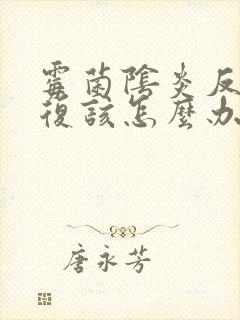 霉菌陰炎反
復該怎麼办
唐永芳